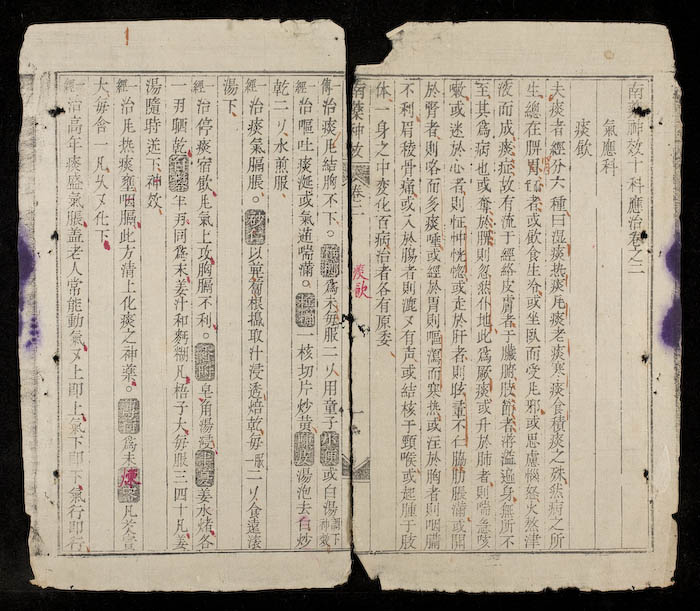 南藥神效十科應治卷之二
氣應科
痰飲
夫痰者經分六種曰湿痰热痰凮痰老痰寒痰食積痰之殊然病之所
生總在脾胃虛者或飲食生冷或坐臥而受凮邪或思慮惱怒火熬津
液而成痰症故有流于經絡皮膚者于臟腑肢節者滂滥遍身無所不
至其為病也或奪於脾則忽然仆地此為厥痰或升於肺者則喘急咳
嗽或迷於心者則怔忡恍惚或走於肝者則眩暈不仁脇肋脹滿或関
於腎者則咯而多痰唾或經於胃則嘔瀉而寒热或注於胸者則咽膈
不利眉稜骨痛或入於腸者則漉又有声或結核于頸喉或起腫于肢
体一身之中变化百病治者各有原委
南藥神效 卷二 痰飲 一
一傳治痰凮結胸不下 為末每服二以用童子 或白湯調下神效
一經治嘔吐痰涎或氣逆喘滿 一核切片炒黃 湯泡去白炒
乾二以水煎服
一經治痰氣膈脹 以萊菔根搗取汁浸透焙乾每服二以食遠淡
湯下
一經治停痰宿飲凮氣上攻胸膈不利 皂角湯浸 姜水煑各
一刄晒乾 半刄同為末姜汁和麪糊凡梧子大每服三四十凡姜
湯隨時送下神效
一經治凮热痰壅咽膈此方清上化痰之神藥 為末煉 凡芡實
大每含一凡久又化下
一經治高年痰盛氣脹盖老人常能動氣又上即上氣下即下氣行即行